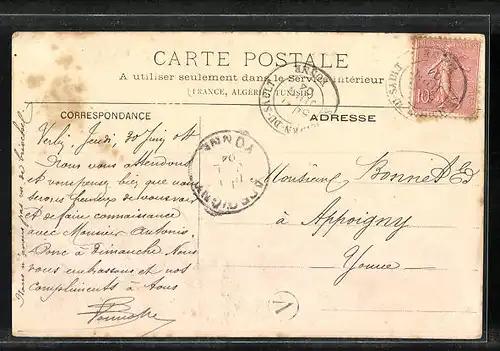 CARTE POSTALE
A utiliser seulement dans le Service intérieur
(FRANCE, ALGÉRIE, TUNISIE)
CORRESPONDANCE
ADRESSE
Jeudi, 30 Juin 04
Nous vous attendons
et vous pensez bien que nous
serons heureux de vous voir
et de faire connaissance
avec Monsieur Antonis.
Donc à dimanche Nous
vous embrassons et nos
compliments à tous
Monsieur Bonnet
à Appoigny
Yonne
YONNE
APPOIGNY
04
10